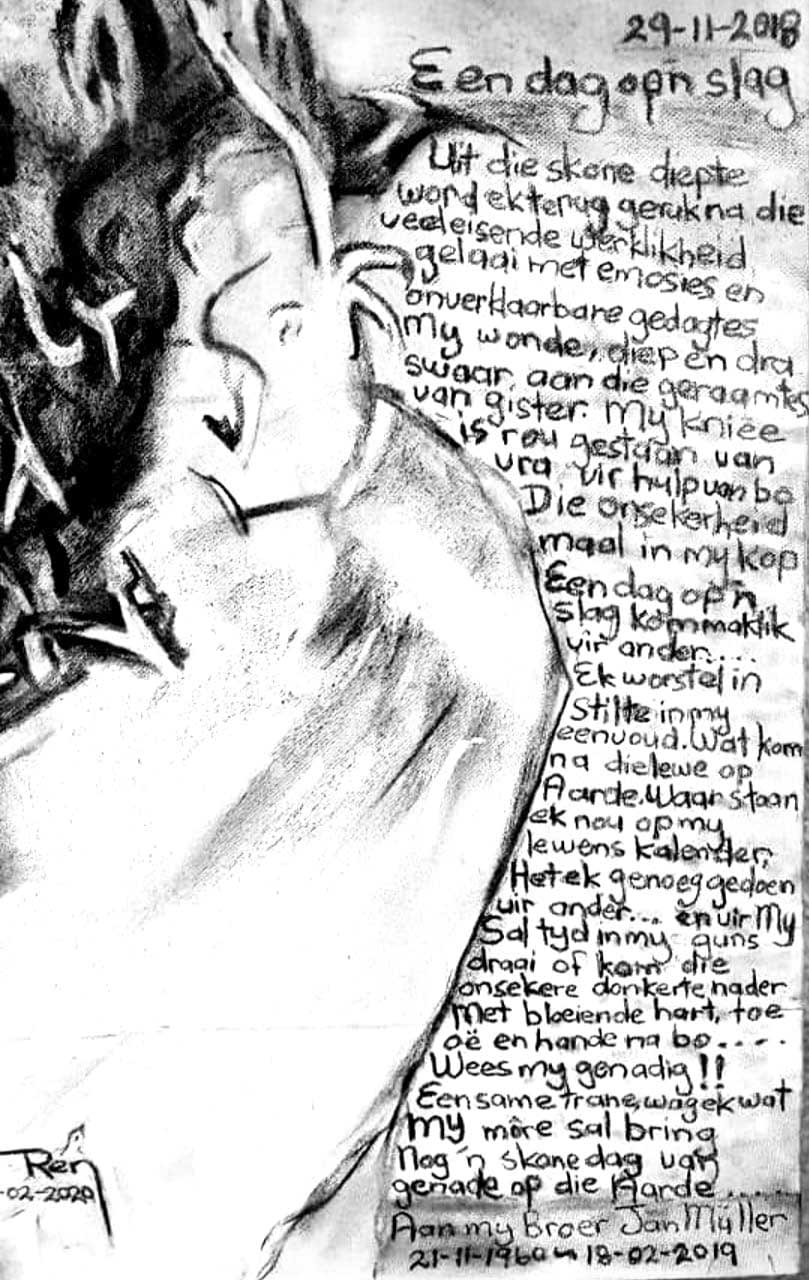 29-11-2018
Een dag op'n slag
Uit die skone diepte
word ek terug geruk na die
veeleisende werklikheid
gelaai met emosies en
onverklaarbare gedagtes
My wonde, diep en dra
swaar aan die geraamtes
van gister. My knieë
is rou gestaan van
vra vir hulp van bo
Die onsekerheid
maal in my kop
Een dag op'n
slag kom maklik
vir ander....
Ek worstel in
stilte in my
eenvoud. Wat kom
na die lewe op
Aarde. Waar staan
ek nou op my
lewens kalender,
Het ek genoeg gedoen
vir ander... en vir My
Sal tyd in my guns
draai of kom die
onsekere donkerte nader
Met bloeiende hart, toe
oë en hande na bo.....
Wees my genadig!!
Eensame trane, wag ek wat
my môre sal bring
Nog 'n skone dag van
genade op die Aarde.....
Aan my Broer Jan Müller
21-11-1960 ~ 18-02-2019
Ren
-02-2020